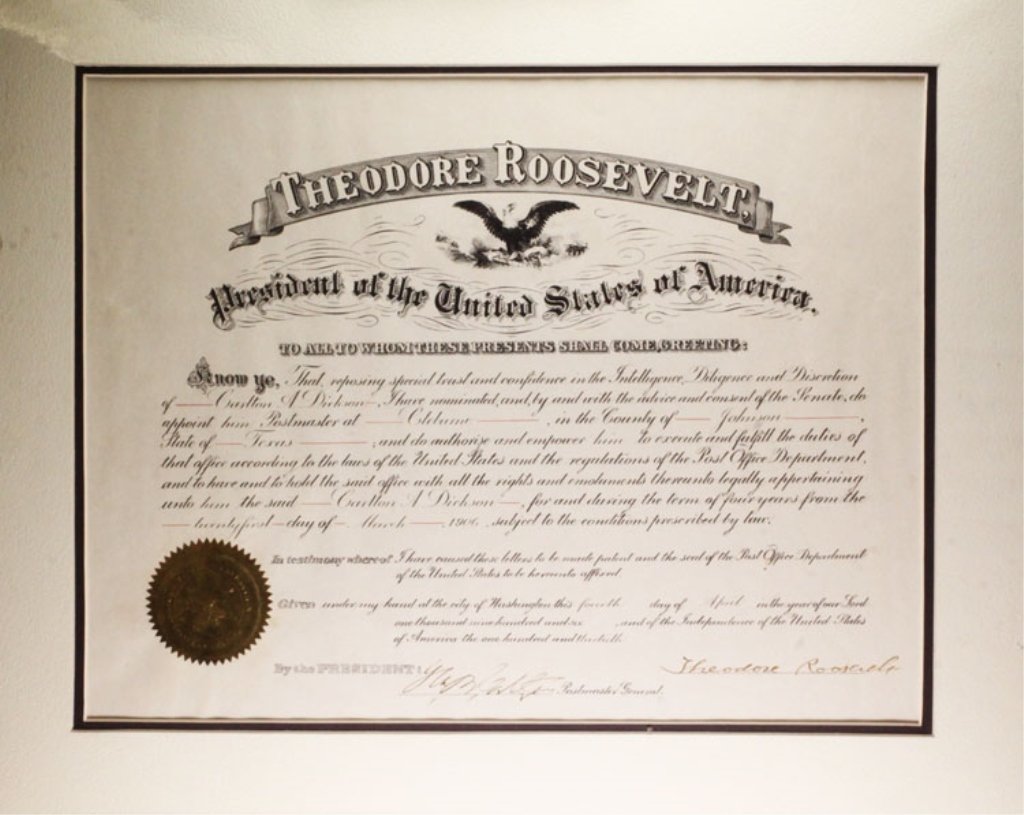 THEODORE ROOSEVELT,
President of the United States of America.
TO ALL TO WHOM THESE PRESENTS SHALL COME, GREETING:
Know ye, That, reposing special trust and confidence in the Intelligence, Diligence and Discretion
of Carlton A Dickson, I have nominated, and, by and with the advice and consent of the Senate, do
appoint him Postmaster at Cleburne, in the County of Johnson,
State of Texas; and do authorize and empower him to execute and fulfill the duties of
that office according to the laws of the United States and the regulations of the Post Office Department,
and to have and to hold the said office with all the rights and emoluments thereunto legally appertaining
unto him the said Carlton A Dickson, for and during the term of four years from the
twenty first day of March, 1906, subject to the conditions prescribed by law.
In testimony whereof I have caused these letters to be made patent and the seal of the Post Office Department
of the United States to be hereunto affixed.
Given under my hand at the city of Washington this fourth day of April in the year of our Lord
one thousand nine hundred and six, and of the Independence of the United States
of America the one hundred and thirtieth.
By the PRESIDENT: Theodore Roosevelt
Postmaster General.